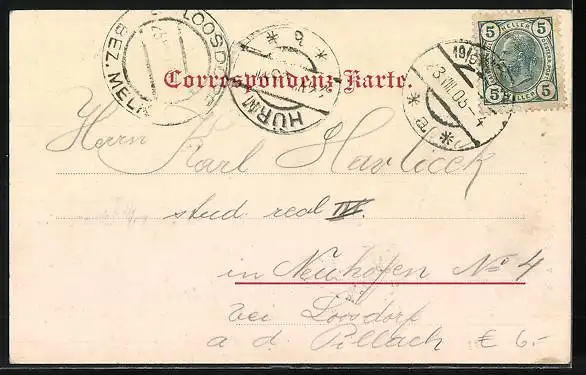 LOOSDORF
BEZ. MELK
HÜRM
* a *
23 VIII 05-4
* a *
5 HELLER 5
5 HELLER 5
Correspondenz-Karte.
Herrn Karl Havlicek
stud. real IV.
in Neuhofen No 4
bei Loosdorf
a d. Pillach € 6,-